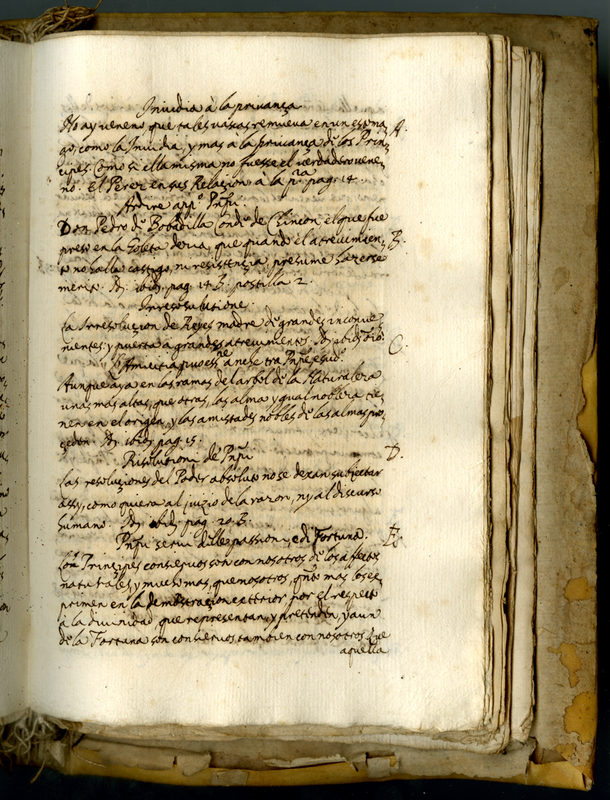 Invidia à la privança
No ay veneno que tales vascas remueva en un estoma- A.
go, como la Invidia, y mas a la privança de los Prin-
cipes Como si ella misma no fuesse el verdadero vene-
no. el Perez en sus Relacion à la pᵃ pag. 14.
Ardire app.º Prñpi.
Don Pedro de Bobadilla Conde de Chinçon el que fue
preso en la Goleta dezia, que quando el atrevimien- B.
to no halla castigo, ni resistenzia presume hazerse
merito. Id. ibid. pag. 14 B. postilla 2.
Irresolutione.
la Irresolucion de Reyes madre de grandes inconve-
nientes, y puerta a grandes atrevimientos. Id. ibid. C.
Aunque aya en las ramas del arbol de la Naturaleza
unas mas altas, que otras, las almas ygual nobleza tie-
nen en el origen, y las amistades nobles de las almas pro-
çeden. Id. ibid. pag. 15.
Risolutioni de Prñpi D.
las resoluçiones del Poder absoluto no se dexan subjectar
assy, como quiera al juizio de la razon, ny al discurso
humano. Id. ibid. pag. 20. B.
Prñpi servi delle passioni, e di Fortuna. E.
Los Principes consiervos son con nosotros de los affectos
naturales, y mucho mas, que nosotros, qnto mas los ex-
primen en la demostracion exterior por el respecto
a la divinidad que representan, y pretenden, y aun
de la Fortuna son consiervos tambien con nosotros, que
aquella